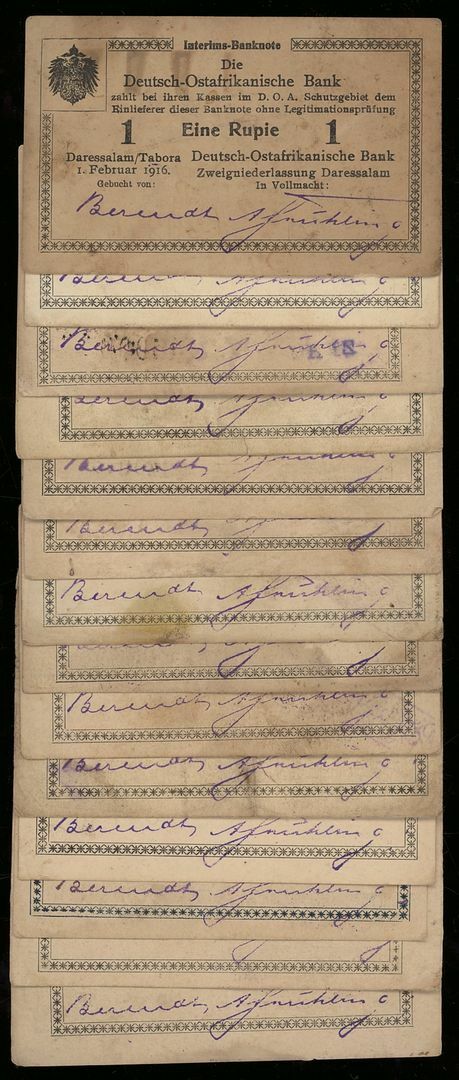 Interims-Banknote
Die
Deutsch-Ostafrikanische Bank
zahlt bei ihren Kassen im D. O. A. Schutzgebiet dem
Einlieferer dieser Banknote ohne Legitimationsprüfung
1 Eine Rupie 1
Daressalam/Tabora Deutsch-Ostafrikanische Bank
1. Februar 1916. Zweigniederlassung Daressalam
Gebucht von: In Vollmacht:
Berendt A Frühling
Berendt A Frühling
Berendt A Frühling
Berendt A Frühling
Berendt A Frühling
Berendt
Berendt A Frühling
Berendt A Frühling
Berendt A Frühling
Berendt A Frühling
Berendt A Frühling
Berendt A Frühling